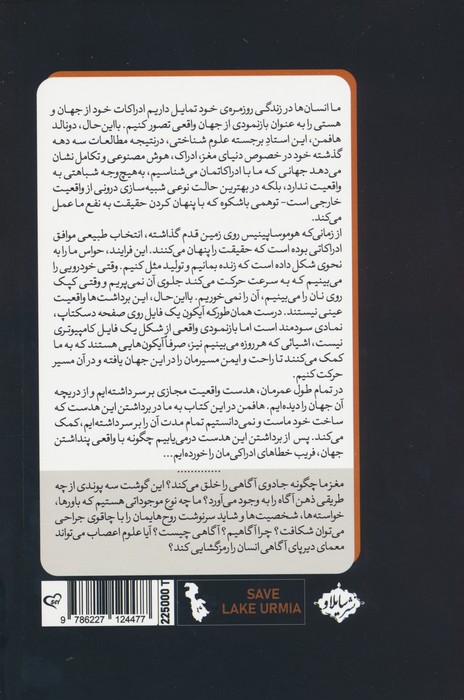 ما انسان‌ها در زندگی روزمره‌ی خود تمایل داریم ادراکات خود از جهان و
هستی را به عنوان بازنمودی از جهان واقعی تصور کنیم. بااین‌حال، دونالد
هافمن، این استادِ برجسته علوم شناختی، درنتیجه مطالعات سه دهه
گذشته خود در خصوص دنیای مغز، ادراک، هوش مصنوعی و تکامل نشان
می‌دهد جهانی که ما با ادراکاتمان می‌شناسیم، به‌هیچ‌وجه شباهتی به
واقعیت ندارد، بلکه در بهترین حالت نوعی شبیه‌سازی درونی از واقعیت
خارجی است- توهمی باشکوه که با پنهان کردن حقیقت به نفع ما عمل
می‌کند.
از زمانی‌که هوموساپینیس روی زمین قدم گذاشته، انتخاب طبیعی موافق
ادراکاتی بوده است که حقیقت را پنهان می‌کنند. این فرایند، حواس ما را به
نحوی شکل داده است که زنده بمانیم و تولید مثل کنیم. وقتی خودرویی را
می‌بینیم که به سرعت حرکت می‌کند جلوی آن نمی‌پریم و وقتی کپک
روی نان را می‌بینیم، آن را نمی‌خوریم. بااین‌حال، این برداشت‌ها واقعیت
عینی نیستند. درست همان‌طورکه آیکون یک فایل روی صفحه دسکتاپ،
نمادی سودمند است اما بازنمودی واقعی از شکل یک فایل کامپیوتری
نیست، اشیائی که هرروزه می‌بینیم نیز، صرفاً آیکون‌هایی هستند که به ما
کمک می‌کنند تا راحت و ایمن مسیرمان را در این جهان یافته و در آن مسیر
حرکت کنیم.
در تمام طول عمرمان، هدست واقعیت مجازی بر سر داشته‌ایم و از دریچه
آن جهان را دیده‌ایم. هافمن در این کتاب به ما در برداشتن این هدست که
ساخت خود ماست و نمی‌دانستیم تمام مدت آن را بر سر داشته‌ایم، کمک
می‌کند. پس از برداشتن این هدست درمی‌یابیم چگونه با واقعی پنداشتن
جهان، فریب خطاهای ادراکی‌مان را خورده‌ایم...
............
مغز ما چگونه جادوی آگاهی را خلق می‌کند؟ این گوشت سه پوندی از چه
طریقی ذهن آگاه را به وجود می‌آورد؟ ما چه نوع موجوداتی هستیم که باورها،
خواسته‌ها، شخصیت‌ها و شاید سرنوشت روح‌هایمان را با چاقوی جراحی
می‌توان شکافت؟ چرا آگاهیم؟ آگاهی چیست؟ آیا علوم اعصاب می‌تواند
معمای دیرپای آگاهی انسان را رمزگشایی کند؟
9 786227 124477
225000 T
SAVE
LAKE URMIA
نشر سایلاو